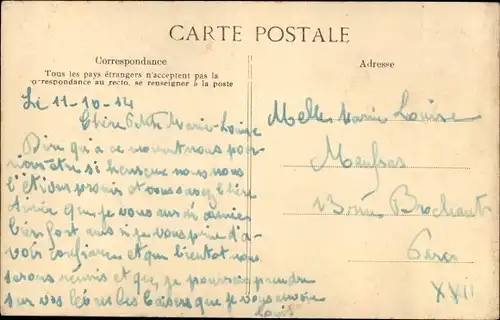 CARTE POSTALE
Correspondance
Tous les pays étrangers n'acceptent pas la
correspondance au recto. se renseigner à la poste
Adresse
Le 11-10-14
Chère Petite Marie-Louise
Dire qu'a ce moment nous pou-
rions être si heureux nous nous
l'étions promis et vous savez chère
aimée que je vous aurai aimée
bien fort aussi je vous prie d'a-
voir confiance et que bientôt nous
serons réunis et que je pourrai prendre
sur vos lèvres les baisers que je vous envoie
Louis
Melle Marie Louise
Rue Brochant
Paris
XVII